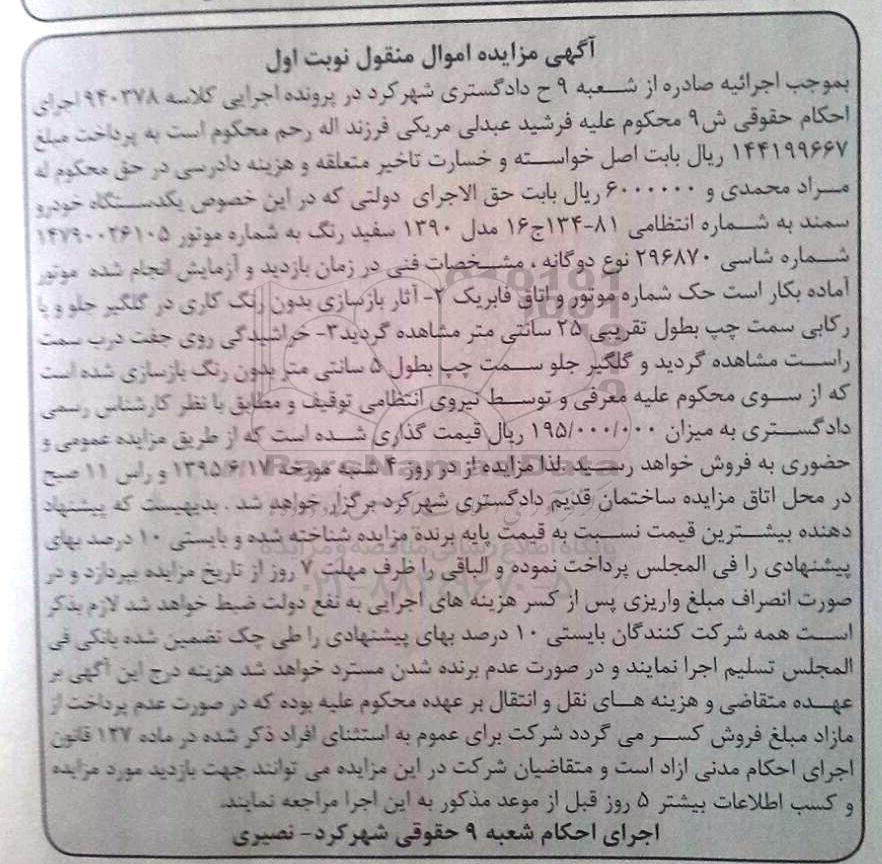 آگهی مزایده اموال منقول نوبت اول
بموجب اجرائیه صادره از شعبه ۹ ح دادگستری شهرکرد در پرونده اجرایی کلاسه ۹۴۰۳۷۸ اجرای
احکام حقوقی ش۹ محکوم علیه فرشید عبدلی مریکی فرزند اله رحم محکوم است به پرداخت مبلغ
۱۴۴۱۹۹۶۶۷ ریال بابت اصل خواسته و خسارت تاخیر متعلقه و هزینه دادرسی در حق محکوم له
مراد محمدی و ۶۰۰۰۰۰۰ ریال بابت حق الاجرای دولتی که در این خصوص یکدستگاه خودرو
سمند به شماره انتظامی ۸۱-۱۳۴ج۱۶ مدل ۱۳۹۰ سفید رنگ به شماره موتور ۱۴۷۹۰۰۲۶۱۰۵
شماره شاسی ۲۹۶۸۷۰ نوع دوگانه ، مشخصات فنی در زمان بازدید و آزمایش انجام شده موتور
آماده بکار است حک شماره موتور و اتاق فابریک ۲- آثار بازسازی بدون رنگ کاری در گلگیر جلو و یا
رکابی سمت چپ بطول تقریبی ۲۵ سانتی متر مشاهده گردید۳- خراشیدگی روی جفت درب سمت
راست مشاهده گردید و گلگیر جلو سمت چپ بطول ۵ سانتی متر بدون رنگ بازسازی شده است
که از سوی محکوم علیه معرفی و توسط نیروی انتظامی توقیف و مطابق با نظر کارشناس رسمی
دادگستری به میزان ۱۹۵/۰۰۰/۰۰۰ ریال قیمت گذاری شده است که از طریق مزایده عمومی و
حضوری به فروش خواهد رسید لذا مزایده از در روز ۴ شنبه مورخه ۱۳۹۵/۶/۱۷ و راس ۱۱ صبح
در محل اتاق مزایده ساختمان قدیم دادگستری شهرکرد برگزار خواهد شد . بدیهیست که پیشنهاد
دهنده بیشترین قیمت نسبت به قیمت پایه برنده مزایده شناخته شده و بایستی ۱۰ درصد بهای
پیشنهادی را فی المجلس پرداخت نموده و الباقی را ظرف مهلت ۷ روز از تاریخ مزایده بپردازد و در
صورت انصراف مبلغ واریزی پس از کسر هزینه های اجرایی به نفع دولت ضبط خواهد شد لازم بذکر
است همه شرکت کنندگان بایستی ۱۰ درصد بهای پیشنهادی را طی چک تضمین شده بانکی فی
المجلس تسلیم اجرا نمایند و در صورت عدم برنده شدن مسترد خواهد شد هزینه درج این آگهی بر
عهده متقاضی و هزینه های نقل و انتقال بر عهده محکوم علیه بوده که در صورت عدم پرداخت از
مازاد مبلغ فروش کسر می گردد شرکت برای عموم به استثنای افراد ذکر شده در ماده ۱۲۷ قانون
اجرای احکام مدنی ازاد است و متقاضیان شرکت در این مزایده می توانند جهت بازدید مورد مزایده
و کسب اطلاعات بیشتر ۵ روز قبل از موعد مذکور به این اجرا مراجعه نمایند.
اجرای احکام شعبه ۹ حقوقی شهرکرد- نصیری